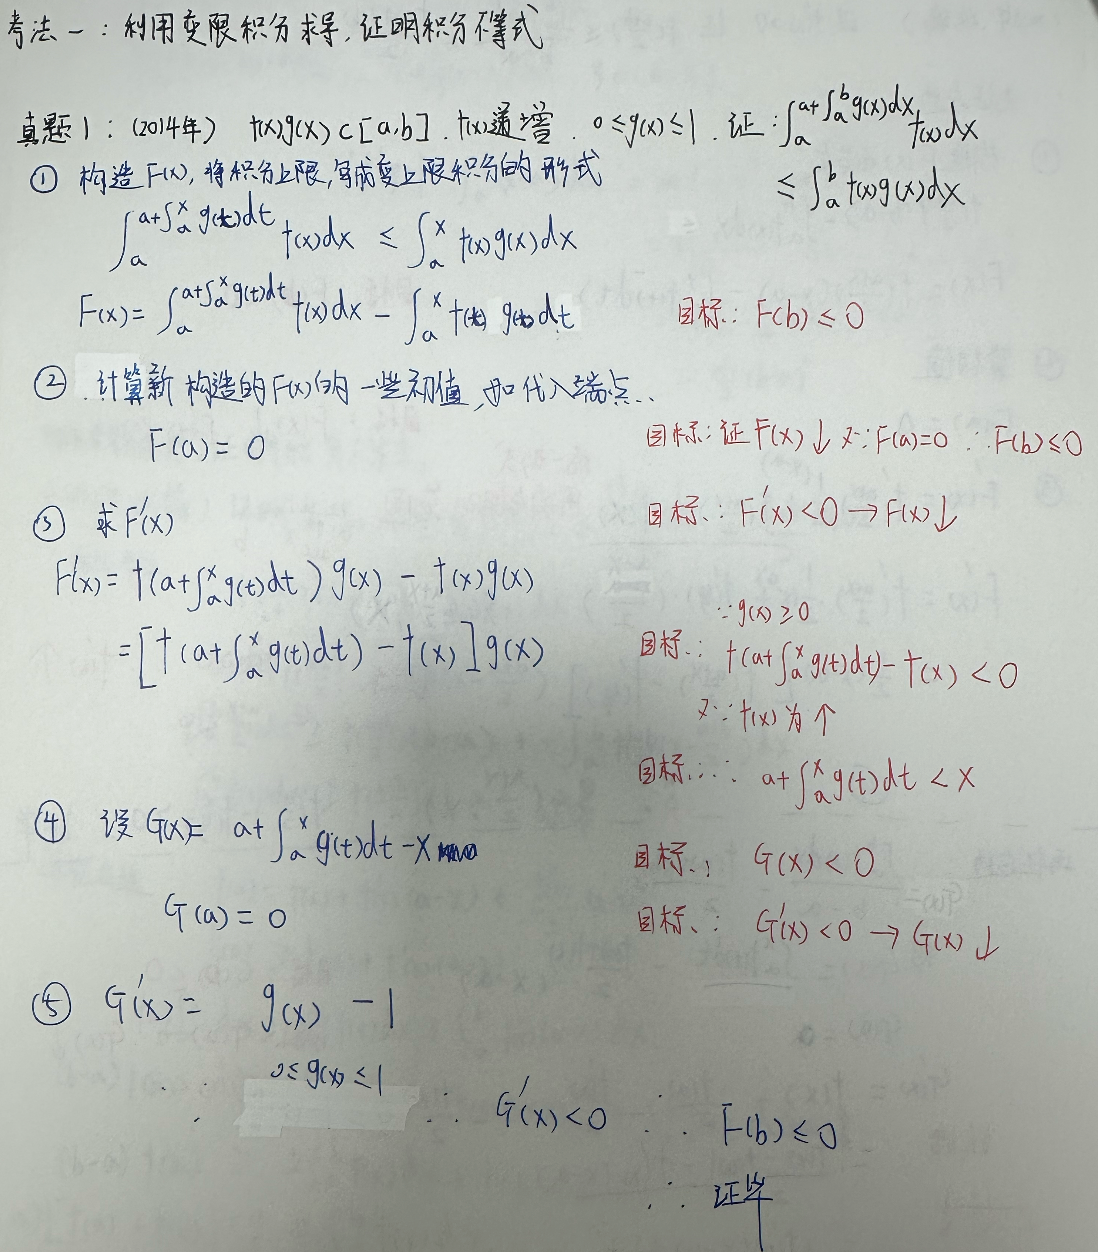 考法一：利用变限积分求导,证明积分不等式
真题1：(2014年) f(x)g(x) C[a,b]. f(x)递增. 0≤g(x)≤1. 证:∫_a^{a+∫_a^b g(x)dx} f(x)dx
≤∫_a^b f(x)g(x)dx
① 构造F(x),将积分上限,写成变上限积分的形式
∫_a^{a+∫_a^x g(t)dt} f(x)dx ≤ ∫_a^x f(x)g(x)dx
F(x)=∫_a^{a+∫_a^x g(t)dt} f(x)dx - ∫_a^x f(t)g(t)dt 目标: F(b)≤0
② 计算新构造的F(x)的一些初值,如代入端点..
F(a)=0 目标:证F(x)↓ 又∵F(a)=0 ∴F(b)≤0
③ 求F'(x) 目标: F'(x)<0→F(x)↓
F'(x)=f(a+∫_a^x g(t)dt)g(x)-f(x)g(x)
=[f(a+∫_a^x g(t)dt)-f(x)]g(x)
∵g(x)≥0
目标: f(a+∫_a^x g(t)dt)-f(x)<0
又∵f(x)为↑
目标:∴ a+∫_a^x g(t)dt<x
④ 设G(x)=a+∫_a^x g(t)dt-x 目标: G(x)<0
G(a)=0 目标: G'(x)<0→G(x)↓
⑤ G'(x)= g(x)-1
∵ 0≤g(x)≤1 ∴ G'(x)<0 ∴ F(b)≤0
∴ 证毕